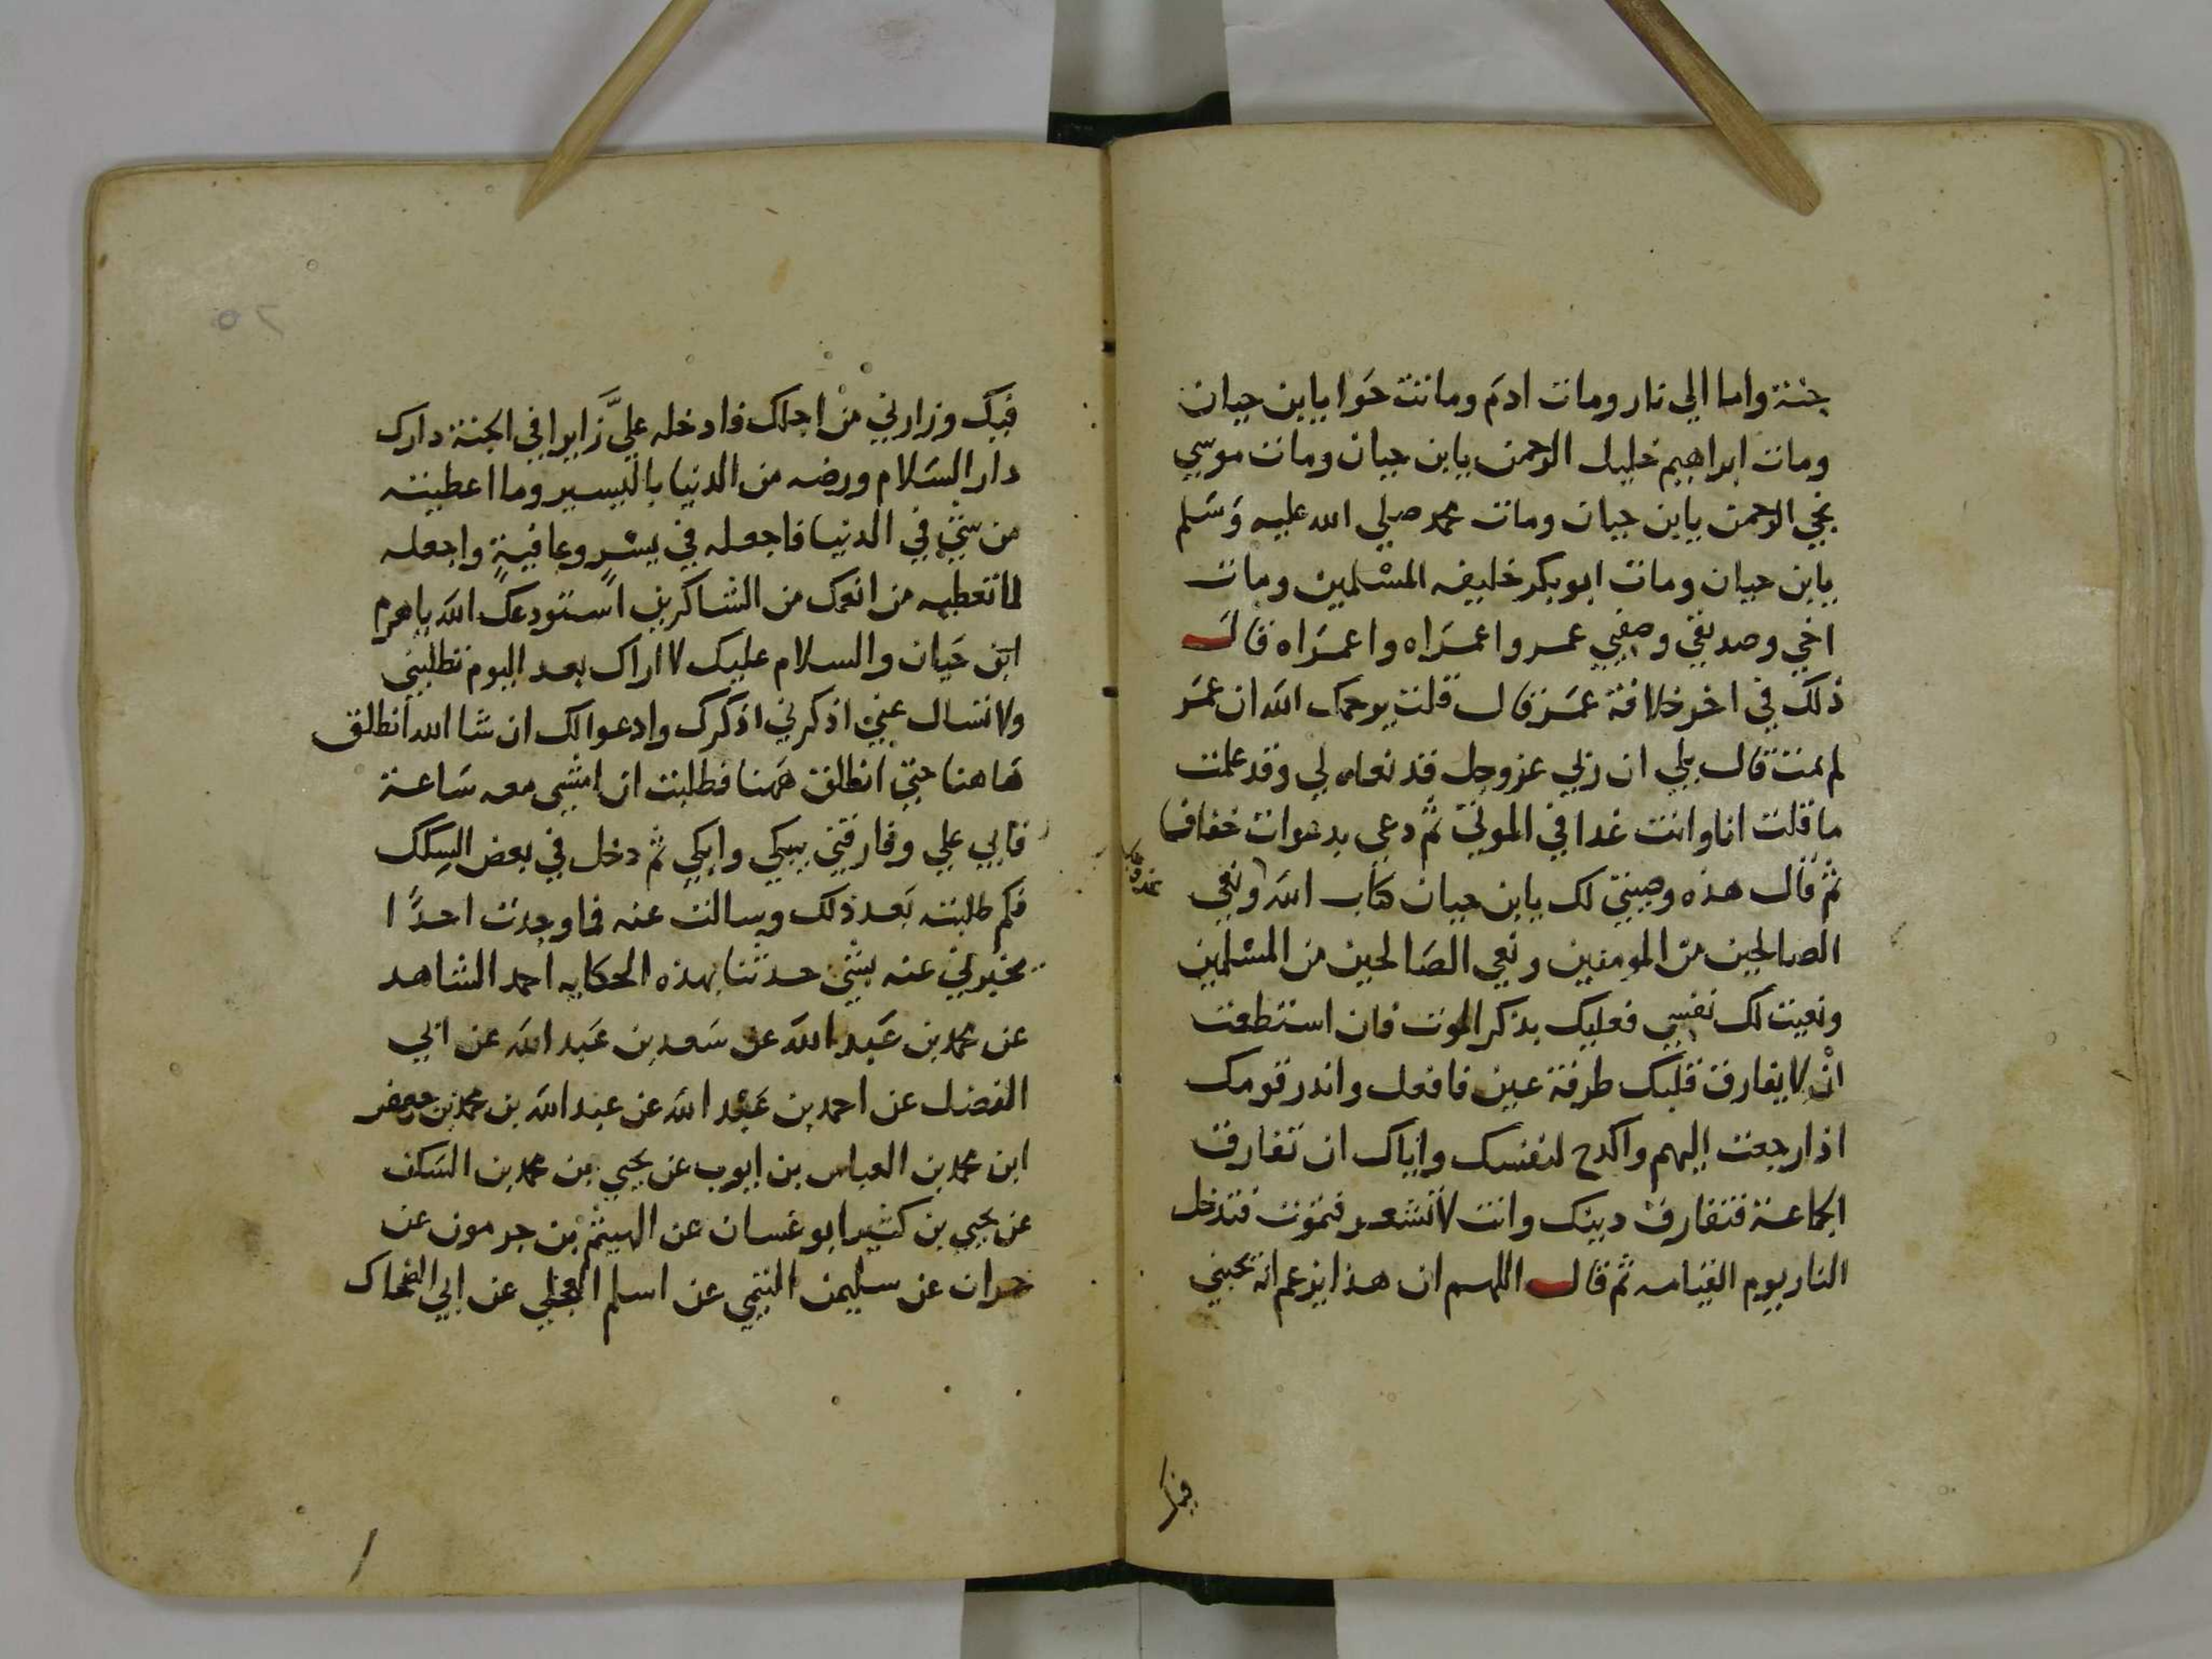 جنة واما الي نار ومات ادم وماتت حوا يابن حيان
ومات ابراهيم خليل الرحمن يابن حيان ومات موسي
نجي الرحمن يابن حيان ومات محمد صلي الله عليه وسلم
يابن حيان ومات ابوبكر خليفه المسلمين ومات
اخي وصديقي وصفيي عمر واعمراه واعمراه قال
ذلك في اخر خلافة عمر قال قلت يرحمك الله ان عمر
لم يمت قال بلي ان ربي عز وجل قد نعاه لي وقد علمت
ما قلت انا وانت غدا في الموتي ثم دعي بدعوات خفاف
ثم قال هذه وصيتي لك يابن حيان كتاب الله ونعي
الصالحين من المومنين ونعي الصالحين من المسلمين
ونعيت لك نفسي فعليك بذكر الموت فان استطعت
ان لا يفارق قلبك طرفة عين فافعل وانذر قومك
اذا رجعت اليهم واكدح لنفسك واياك ان تفارق
الجماعة فتفارق دينك وانت لا تشعر فتموت فتدخل
النار يوم القيامه ثم قال اللهم ان هذا يزعم انه يحبني
فيك
فيك وزارني من اجلك فادخله علي زايرا في الجنة دارك
دار السلام ورضه من الدنيا باليسير وما اعطيته
من شي في الدنيا فاجعله في يسر وعافية واجعله
لما تعطيه من انعمك من الشاكرين استودعك الله ياهرم
ابن حيان والسلام عليك لا اراك بعد اليوم تطلبني
ولا تسال عني اذكرني اذكرك وادعوا لك ان شا الله انطلق
هاهنا حتي انطلق ههنا فطلبت ان امشي معه ساعة
فابي علي وفارقني يبكي وابكي ثم دخل في بعض السكك
فكم طلبته بعد ذلك وسالت عنه فما وجدت احدا
يخبرني عنه بشي حدثنا بهذه الحكايه احمد الشاهد
عن محمد بن عبد الله عن سعد بن عبد الله عن ابي
الفضل عن احمد بن عبد الله عن عبد الله بن محمد بن جعفر
ابن محمد بن العباس بن ايوب عن يحيي بن محمد بن السكن
عن يحيي بن كثير ابو غسان عن الهيثم بن جرمون عن
حمران عن سليمن التيمي عن اسلم العجلي عن ابي الضحاك